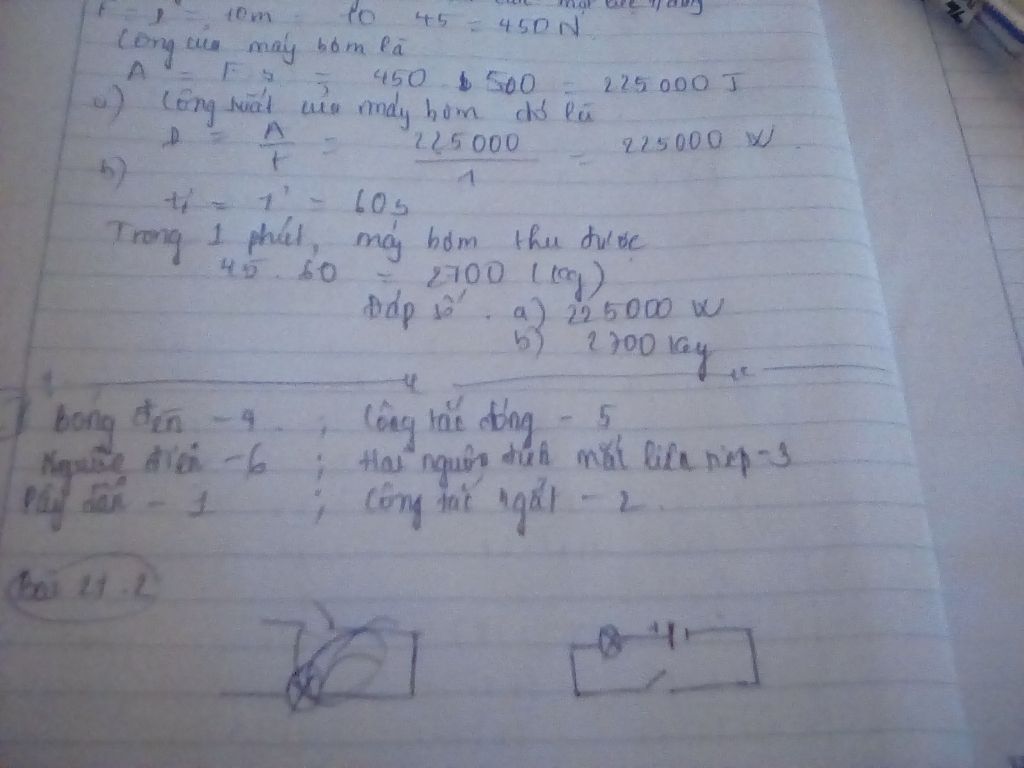 F = P = 10m = 10 45 = 450 N
Công của máy bơm là
A = F s = 450 500 = 225000 J
a) Công suất của máy bơm đó là
P = A/t = 225000/1 = 225000 W
b)
t' = 1' = 60s
Trong 1 phút, máy bơm thu được
45.60 = 2700 (kg)
Đáp số. a) 225000 W
b) 2700 kg
bóng đèn - 4 ; Công tắc đóng - 5
Nguồn điện - 6 ; Hai nguồn điện mắc liên tiếp - 3
Dây dẫn - 1 ; Công tắc ngắt - 2.
Bài 21.2